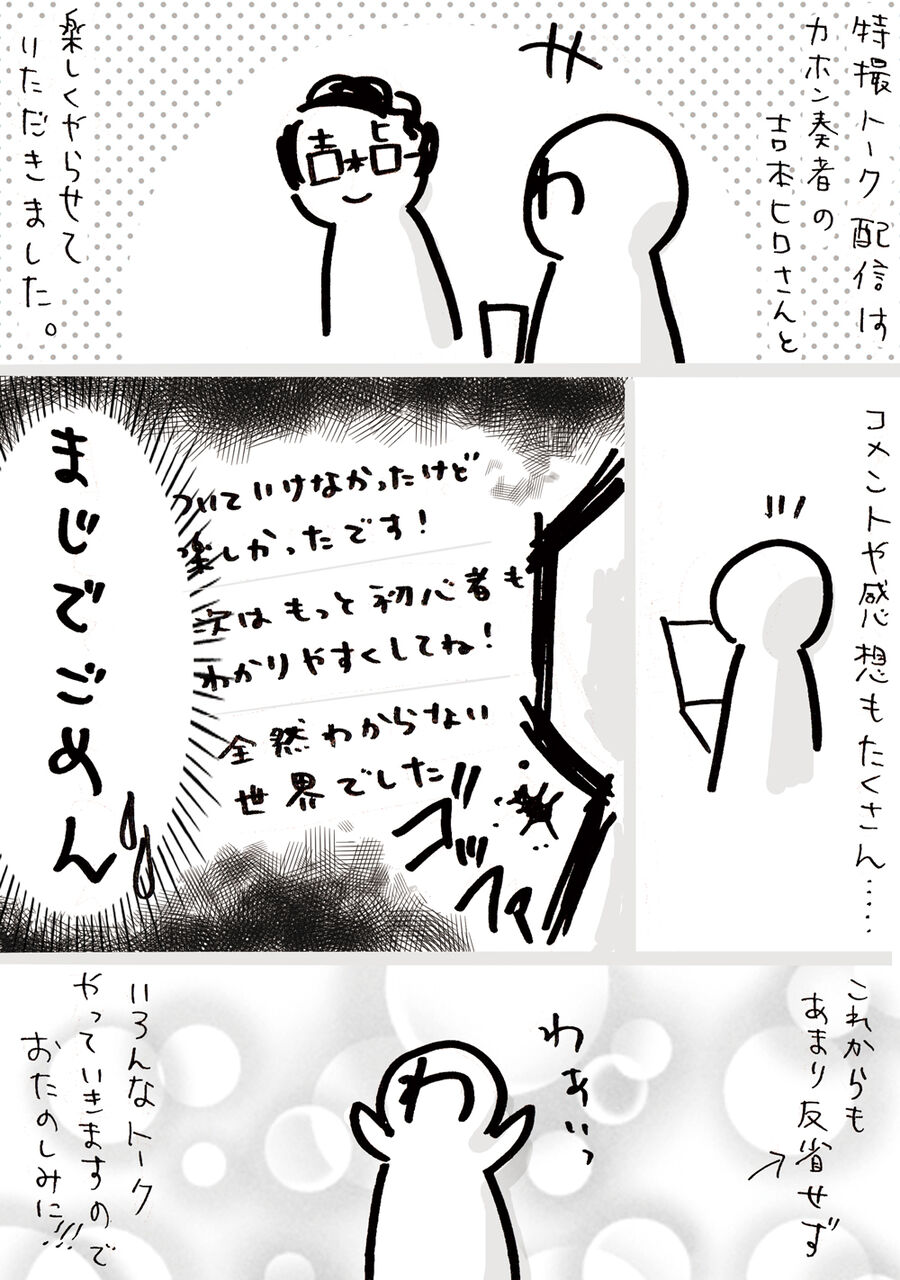 特撮トーク配信は
カホン奏者の
吉本ヒロさんと
わ
吉本ヒロ
楽しくやらせて
いただきました。
コメントや感想もたくさん……
ついていけなかったけど
楽しかったです!
次はもっと初心者も
わかりやすくしてね!
全然わからない
世界でした
ゴッファ
まじでごめん
これからも
あまり反省せず
わあいっ
わ
いろんなトーク
やっていきますので
おたのしみに!!!